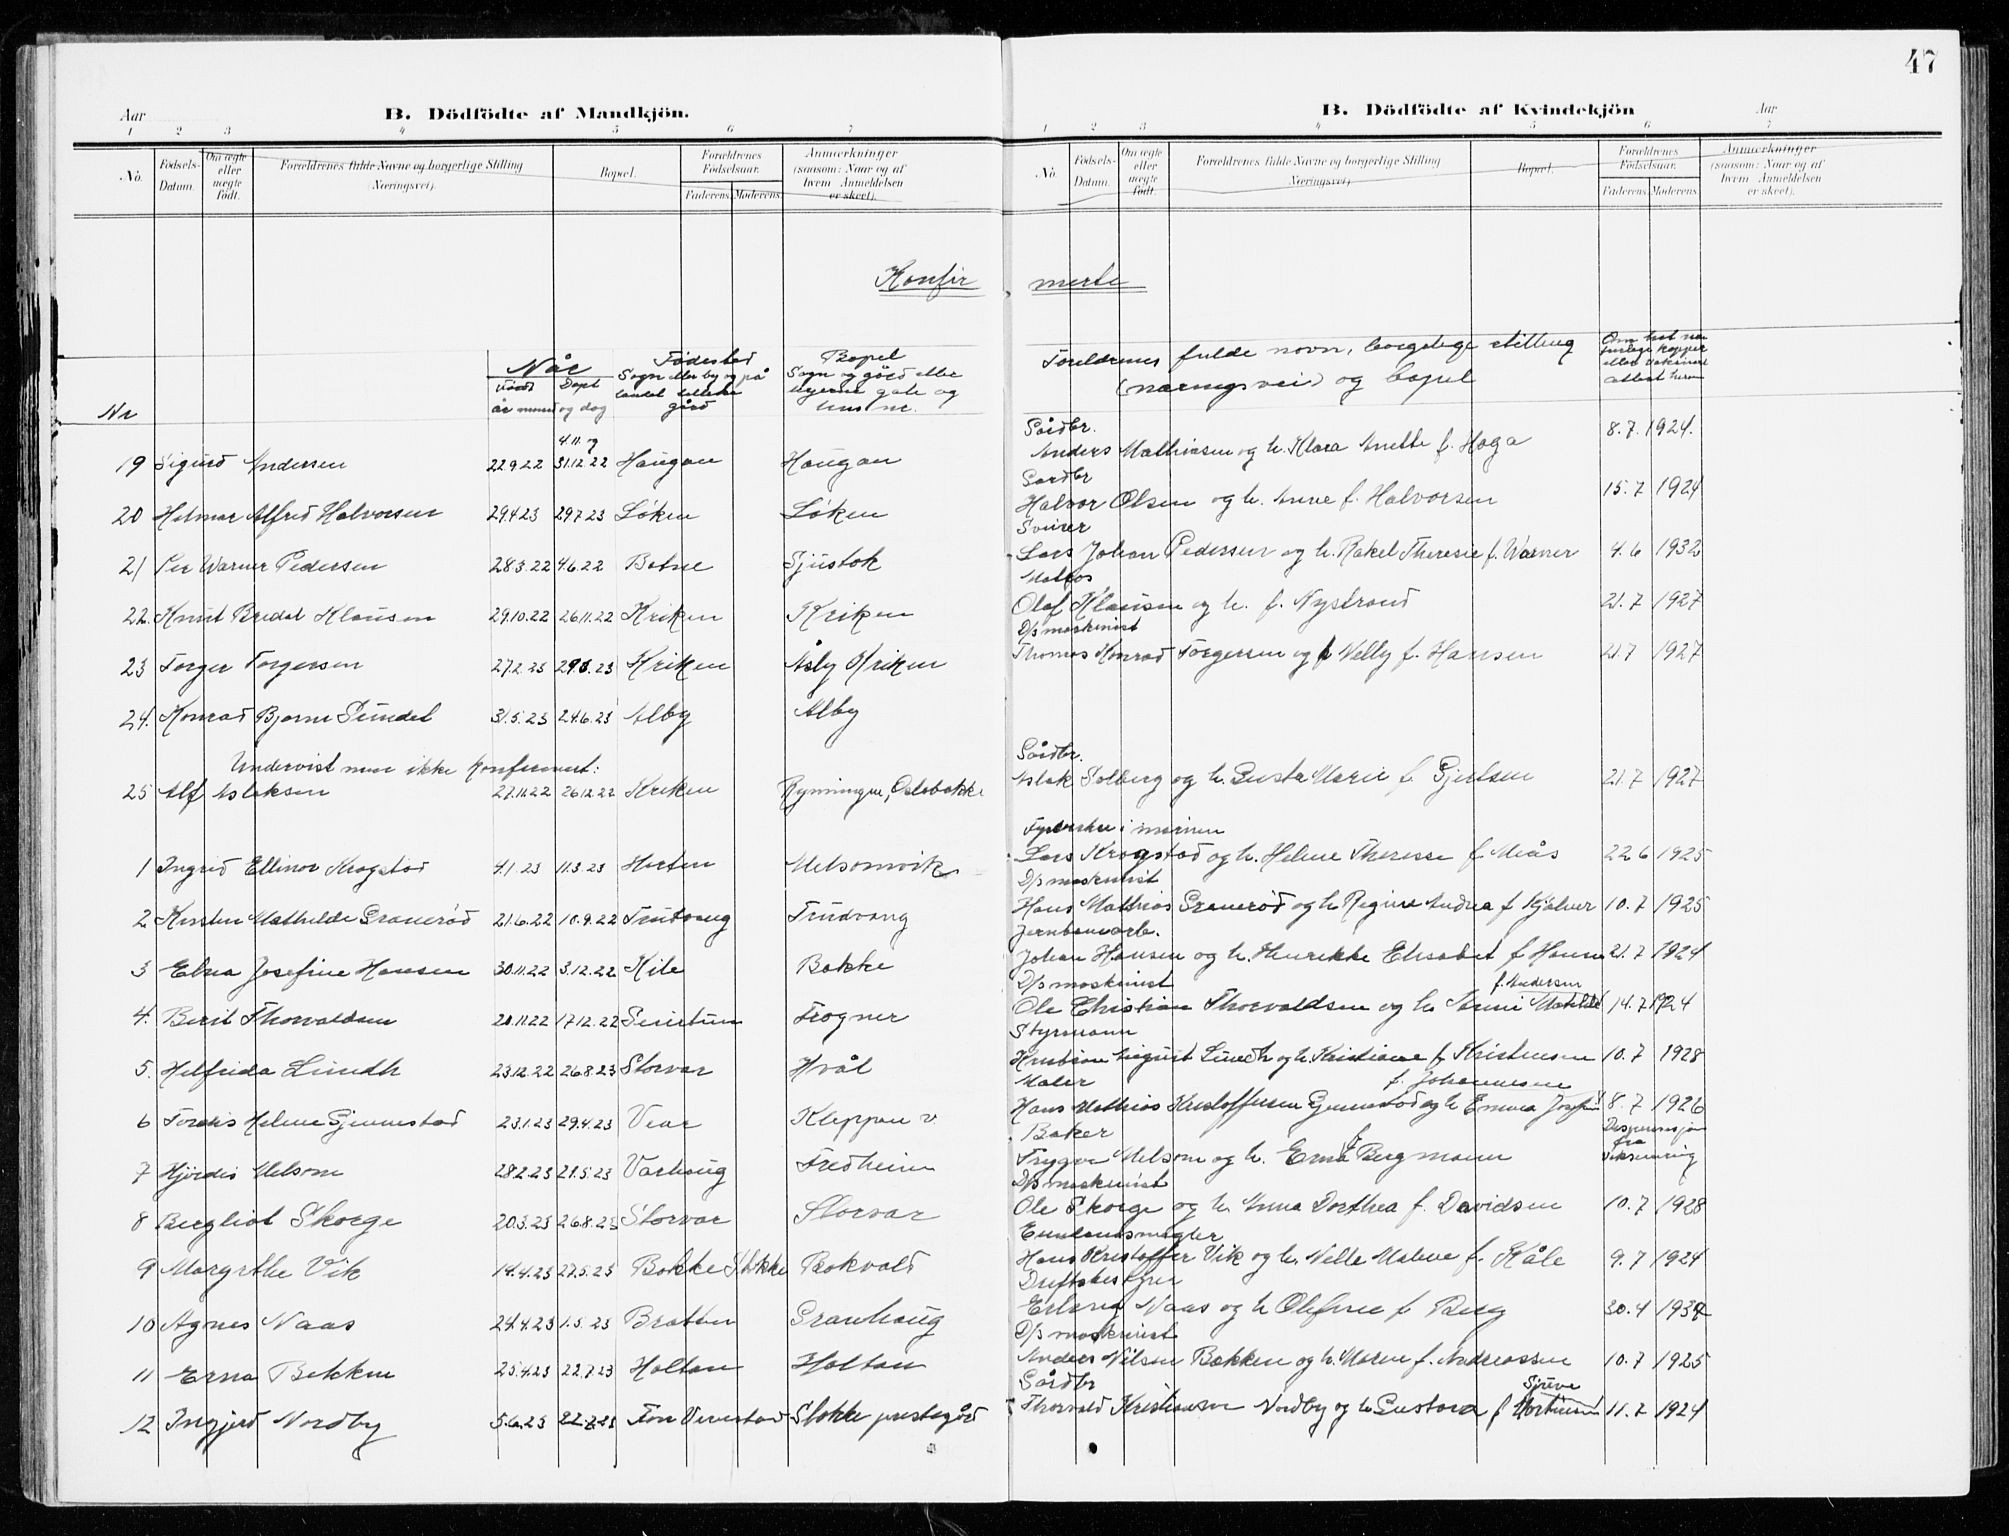 47
Aar B. Dödfödte af Mandkjön.
1 2 3 4 5 6 7
No. Födsels-Datum. Om ægte eller uægte födt. Forældrenes fulde Navne og borgerlige Stilling Næringsvei). Bopæl. Forældrenes Födselsaar. Faderens. Moderens. Anmærkninger (saasom: Naar og af hvem Anmeldelsen er skeet).
B. Dödfödte af Kvindekjön Aar
1 2 3 4 5 6 7
No. Födsels-Datum. Om ægte eller uægte födt. Forældrenes fulde Navne og borgerlige Stilling Næringsvei) Bopæl. Forældrenes Födselsaar. Faderens. Moderens. Anmærkninger (saasom: Naar og af hvem Anmeldelsen er skeet).
Konfir merte
Nr Når Født Døpt år måned og dag Fødested Sogn eller by og på landet tillike gård Bopel Sogn og gård eller byens gate og hus nr.
Foreldrenes fulde navn, borgelige stilling (næringsvei) og bopel
Om hat naturlige kopper eller vaksinert attest herom
Gårdbr.
19 Sigurd Andersen 22.9.22 4.11. og 31.12.22 Haugan Haugan Anders Mathiasen og h. Klara Anette f. Haga 8.7. 1924.
Gardbr
20 Hilmar Alfred Halvorsen 29.4.23 29.7.23 Løken Løken Halvor Olsen og h. Anne f. Halvorsen 15.7 1924
Sveiser
21 Per Warner Pedersen 28.3.22 4.6.22 Botne Gjustok Lars Johan Pedersen og h. Rakel Theresie f. Warner 4.6 1932
Matros
22. Knut Bredal Klausen 29.10.22 26.11.22 Kriken Kriken Olaf Klausen og h. f. Nystrand 21.7 1927
D/s maskinist
23 Torger Torgersen 27.2.23 29.6.23 Kriken Åsly Kriken Thomas Konrad Torgersen og h Nelly f. Hansen 21.7 1927
24. Konrad Bjarne Sundet 31.5.23 24.6.23 Alby Alby
Undervist men ikke konfirmert:
Gårdbr.
25 Alf Aslaksen 27.11.22 26.12.22 Kriken Rynningen, Oslobakke Aslak Solberg og h. Gusta Marie f. Gjertsen 21.7 1927
Fyrbøter i marinen
1 Ingrid Ellinor Krogstad 4.1.23 11.3.23 Horten Melsomvik Lars Krogstad og h. Helene Therese f. Meås 22.6 1925
D/s maskinist
2 Kirsten Mathilde Granerød 21.6.22 10.9.22 Trudvang Trudvang Hans Mathias Granerød og h Regine Andrea f. Kjølner 10.7 1925
Jernbanearb.
3 Elna Josefine Hansen 30.11.22 3.12.22 Kile Bakke Johan Hansen og h. Henrikke Elisabet f Hansen 21.7 1924
D/s maskinist f. Andersen
4. Berit Thorvaldsen 20.11.22 17.12.22 Frogner Ole Christian Thorvaldsen og h. Anni Matilde 14.7 1924
Styrmann
5. Helfrida Lindh 23.12.22 26.8.23 Storvar Hvål August Lindh og h. Kristiane f Kristensen 10.7 1928
Maler f. Johannesen
6 Tordis Helene Gjennestad 23.1.23 29.4.23 Vear Kleppan v. Hans Mathias Kristoffersen Gjennestad og h Emma Josefine 8.7 1926
Baker Dispensasjon fra vaksinering
7 Hjørdis Melsom 28.2.23 21.5.23 Varhaug Fredheim Trygve Melsom og h. Erna f Bergmann
D/s maskinist
8 Bergliot Skorge 20.3.23 26.8.23 Storvar Storvar Ole Skorge og h. Anna Dorthea f. Davidsen 10.7 1928
Eiendomsmegler
9 Margrethe Vik 14.4.23 27.5.23 Bokke Stokke Bakvold Hans Kristoffer Vik og h. Nelle Malene f. Kåle 9.7 1924
Driftsbestyrer
10 Agnes Naas 24.4.23 1.5.23 Bratten Granhaug Erling Naas og h Olefine f Berg 30.4 1937
D/s maskinist
11 Erna Bekken 25.4.23 22.7.23 Holtan Holtan Anders Nilsen Bakken og h. Maren f. Andreassen 10.7 1925
Gårdbr Gjeve
12 Ingjerd Nordby 5.6.23 22.7.23 Fon Vivestad Stokke prestegård Thorvald Kristiansen Nordby og h Gustava f Mortinsen 11.7 1924